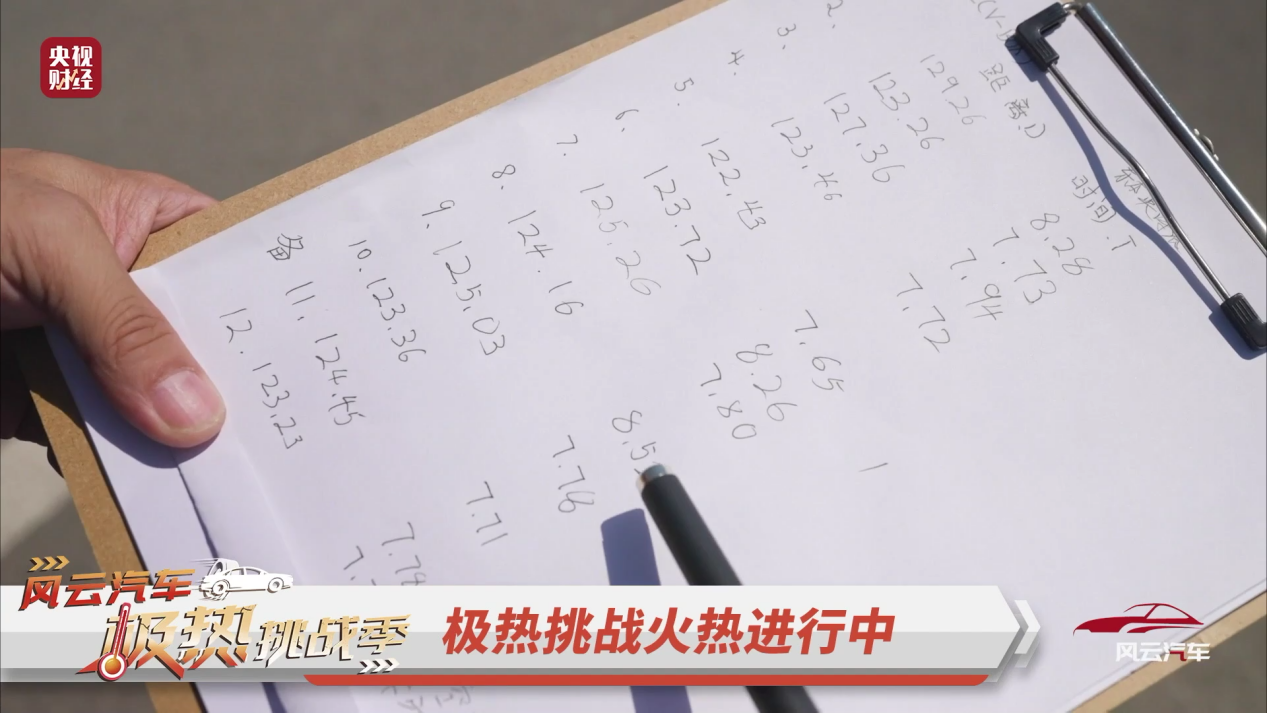 央视
财经
距离D
时间.T
129.26
8.28
2. 123.26
7.73
3. 127.36
7.94
4. 123.46
7.72
5. 122.43
6. 123.72
7.65
7. 125.26
8.26
8. 124.16
7.80
9. 125.03
8.5
10. 123.36
7.78
备 11. 124.45
7.71
12. 123.23
7.74
1
风云汽车
极热挑战季
极热挑战火热进行中
风云汽车